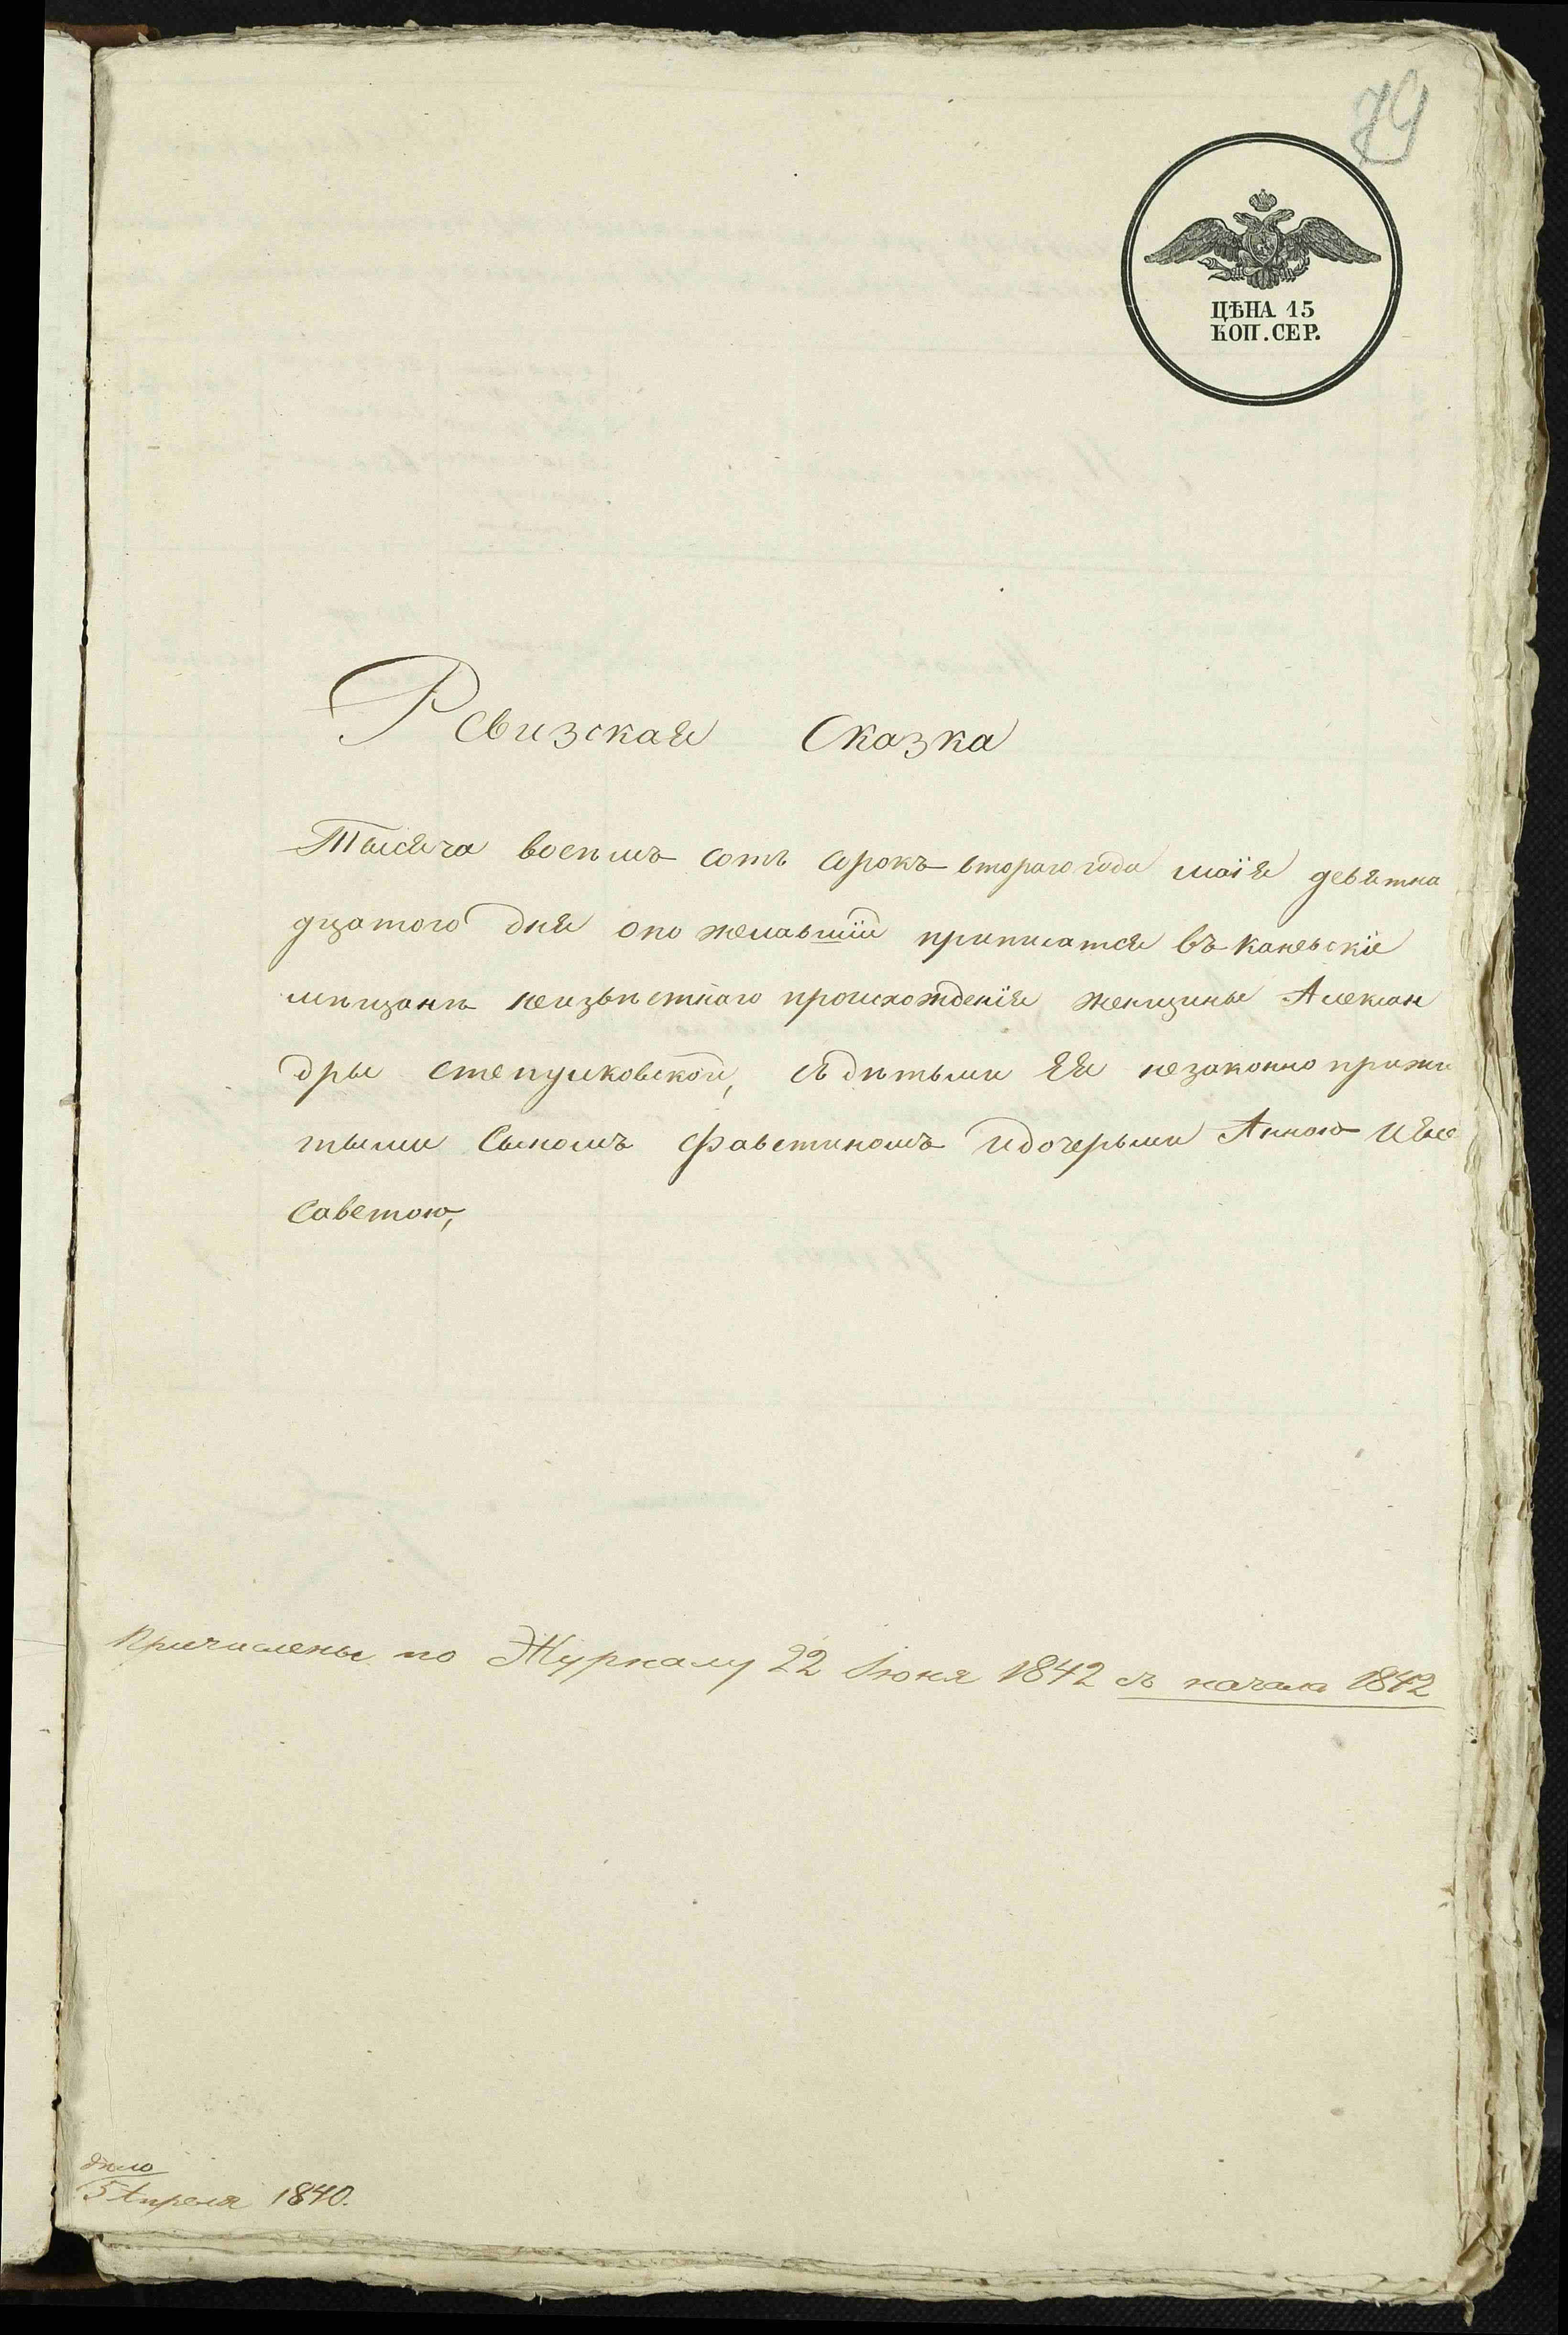 79
ЦѢНА 15
КОП. СЕР.
Ревизская Сказка
Тысяча восемъ сотъ сорокъ втораго года маія девятна
дцатого дня опо желавшіи приписатся въ каневскіе
мѣщанѣ неизвѣстнаго происхожденія женщины Алексан
дры степулковской, съ дѣтьми Ея незаконно прижи
тыми Сыномъ Фавстиномъ и дочерьми Анною и Ели
саветою,
Причислены по Журналу 22 Іюня 1842 съ начала 1842
дѣло
5 Апреля 1840.